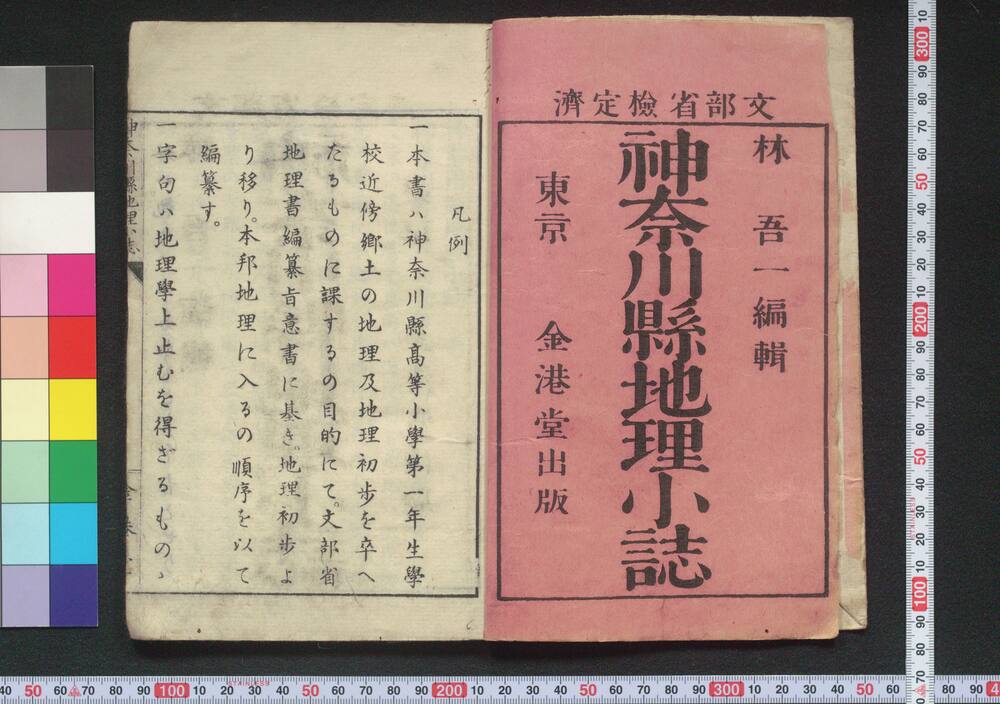 文部省檢定濟
林吾一編輯
神奈川縣地理小誌
東京 金港堂出版
凡例
一本書ハ神奈川縣高等小學第一年生學
校近傍鄉土の地理及地理初步を卒へ
たるものに課するの目的にて。文部省
地理書編纂旨意書に基き。地理初步よ
り移り。本邦地理に入るの順序を以て
編纂す。
一字句ハ地理學上止むを得ざるものゝ
神奈川縣地理小誌